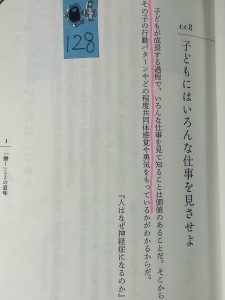 128
008
子どもにはいろんな仕事を見させよ
子どもが成長する過程で、いろんな仕事を見て知ることは価値のあることだ。そこから
その子の行動パターンやどの程度共同体感覚や勇気をもっているかがわかるからだ。
『人はなぜ神経症になるのか』
1 「働く」ことの意味